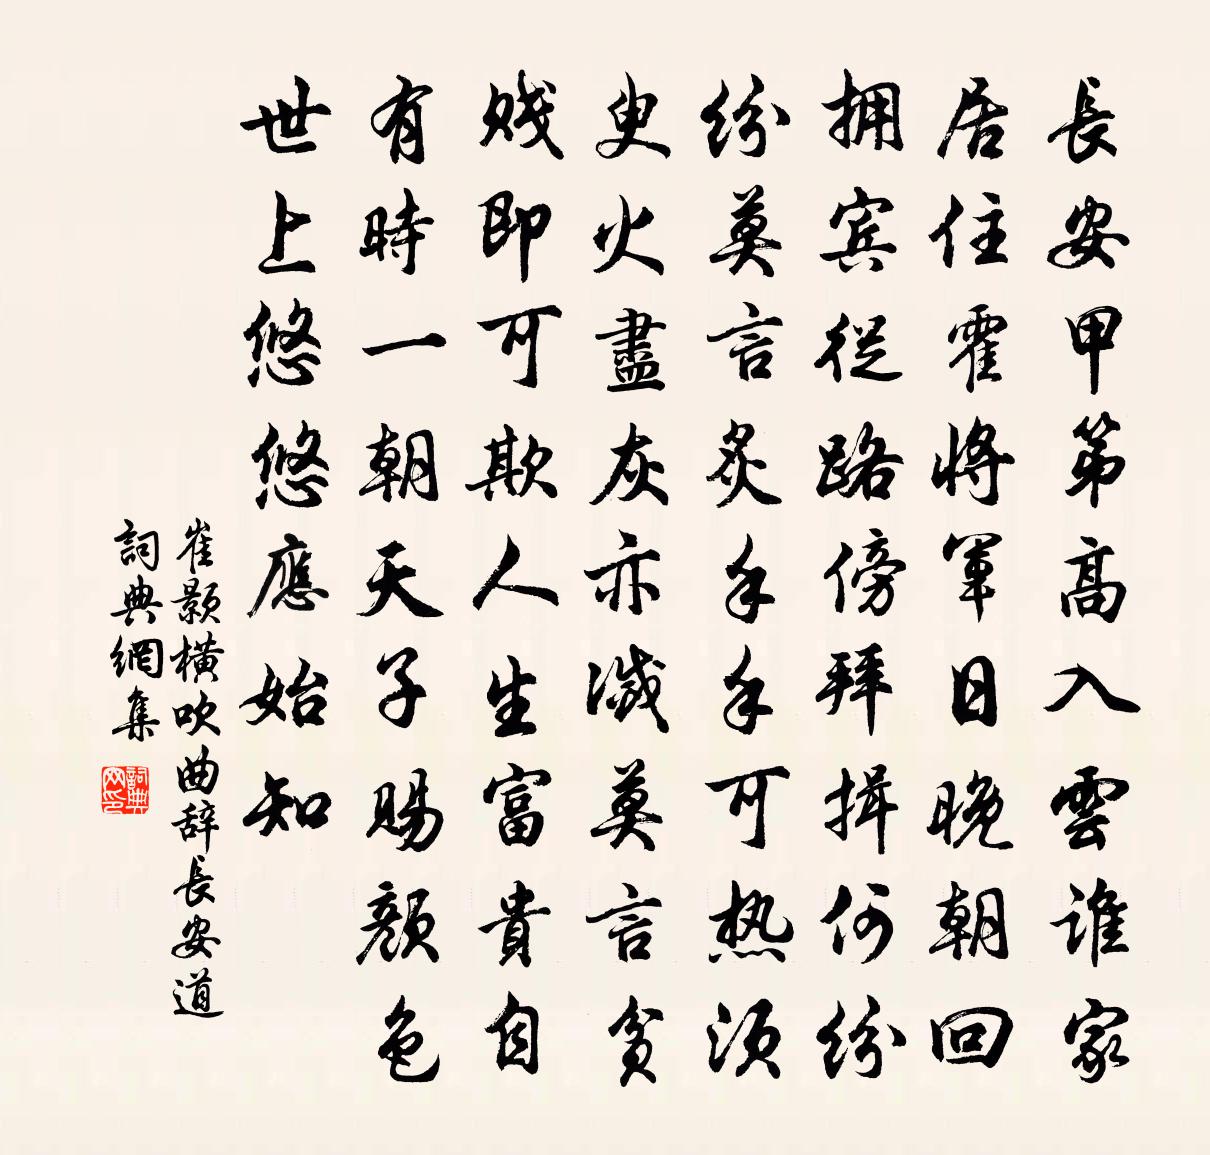 長安甲第高入雲誰家
居住霍將軍日晚朝回
拥宾從路傍拜揖何紛
紛莫言炙手手可热須
臾火盡灰亦滅莫言貧
賤即可欺人生富貴自
有時一朝天子賜顏色
世上悠悠應始知
崔颢橫吹曲辞長安道
詞典網集
詞典网印